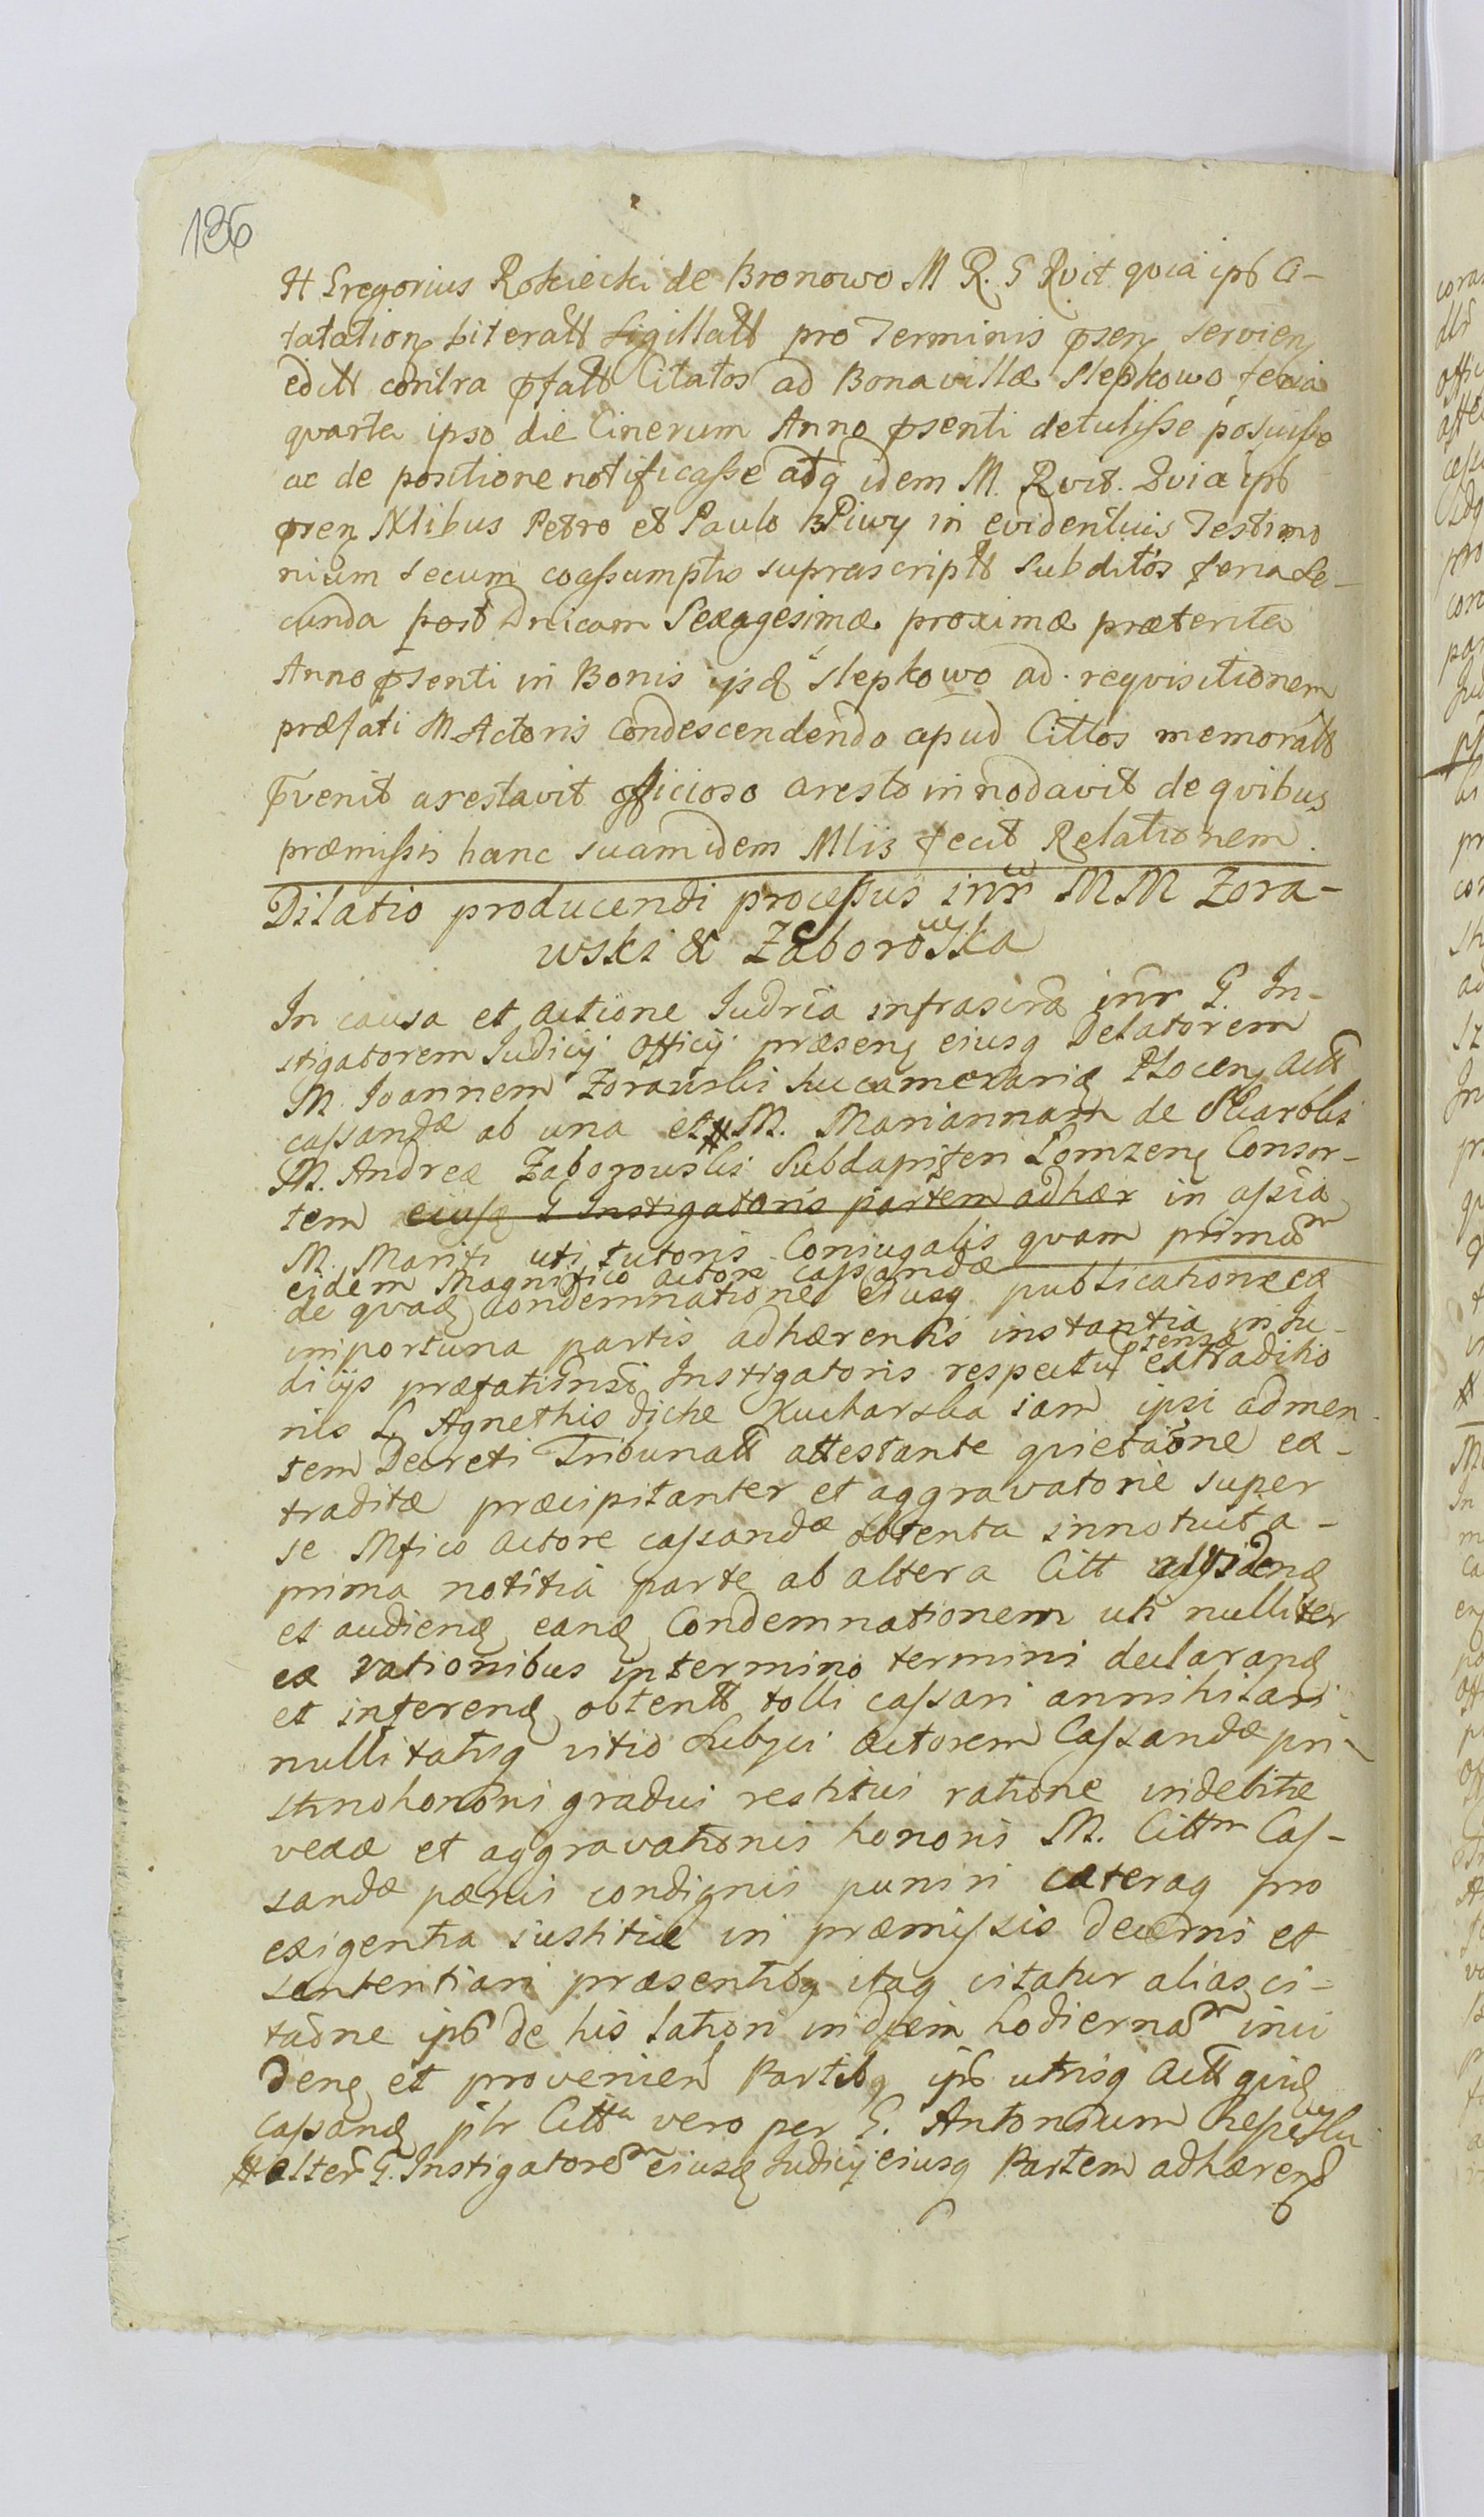 136
H Gregorius Rościecki de Bronowo M R. G Rvit qvia ips Ci-
tatation Literatt Sigillatt pro Terminis psen servien
editt contra pfatt Citatos ad Bona villæ Slepkowo feria
qvarta ipso die Cinerum Anno psenti detulisse posuisse
ac de positione notificasse atq idem M. Rvit. Qvia ips
psen Nlibus Petro et Paulo Piwy in evidentius Testimo
nium secum coassumptis suprascriptt Subditos feria Se-
cunda post Dnicam Sexagesimæ proximæ præterita
Anno psenti in Bonis ijsd Slepkowo ad reqvisitionem
præfati M Actoris Condescendendo apud Cittos memoratt
pvenit arestavit officioso aresto innodavit de qvibus
præmissis hanc suam idem Mlis fecit Relationem.
Dilatio producendi processus inr MM Zora-
wski & Zaborowska
In causa et actione Iudria infrascra inr G. In-
stigatorem Iudicij Officij præsen eiusq Delatorem
M. Ioannem Zorawski Succamerarid Plocen Actt
cassandæ ab una et # M. Mariannam de Skarbki
M. Andreæ Zaborowski Subdapiferi Lomzen Consor-
tem eiusd G Instigatoris partem adhær in assia
M. Mariti uti tutoris Coniugalis qvam primam
eidem Magnifico actore cassandæ
de qvad condemnatione eiusq publicatione ex
importuna partis adhærentis instantia in Iu-
dicijs præfati Instigatoris respectu psensæ extraditio
nis L. Agnethis dicke Kucharska iam ipsi ad men-
tem Decreti Tribunatt attestante qvietaone ex-
traditæ præcipitanter et aggravatorie super
se Mfico Actore cassandæ obtenta innotuit a-
prima notitia parte ab altera Citt
et audiend eand Condemnationem uti nulliter
ex rationibus in termino termini declarand
et inferend obtentt tolli cassari annihilari
nullitatisq vitio subijci actorem Cassandæ pri-
stino honori gradui restitui ratione indebitæ
vexæ et aggravationis honoris M. Cittm Cas-
sandæ pænis condignis puniri cæteraq pro
exigentia iustitiæ in præmissis decerni et
sententiari præsentibq itaq citatur alias ci-
taone ips de his lation in diem hodiernam inci
den et provenien Partibq ips utrisq Actt qvid
cassand plr Citta vero per G. Antonium
# alter G. Instigatorem eiusd Iudicij eiusq Partem adhærend